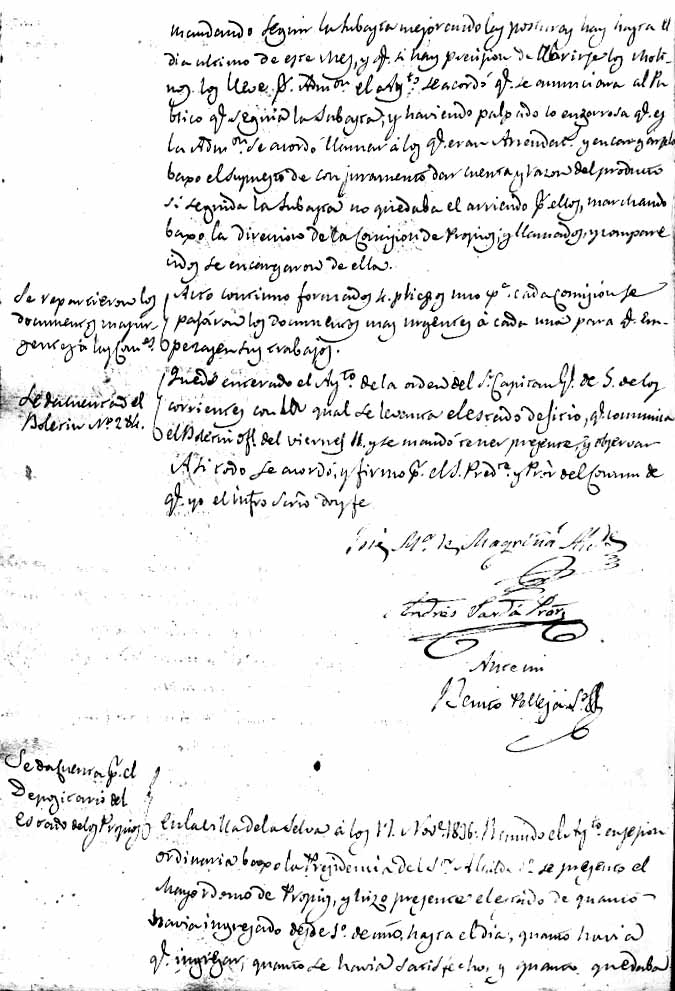 mandando seguir la subasta mejorando las posturas hay hasta el
dia ultimo de este mes, y q.e si hay precision de abrirse los Moli-
nos los lleve p.r Adm.on el Ay.to se acordó q.e se anunciara al Pu-
blico q.e seguia la Subasta, y haviendo palpado lo engorrosa q.e es
la Adm.on se acordo llamar á los q.e eran Arrendat.s y encargarselo
baxo el supuesto de con juramento dar cuenta y razon del producto
si seguida la Subasta no quedaba el arriendo p.r ellos, marchando
baxo la direccion de la Comision de Propios, y llamados, y compare-
cidos se encargaron de ella.
Se repartieron los
documentos mas ur-
gentes á las Com.es
Acto continuo formados 4. pliegos uno p.a cada Comision se
pasáron los documentos mas urgentes á cada una para q.e em-
perasen sus trabajos.
Se da cuenta del
Boletin N.o 284.
Quedó enterado el Ay.to de la orden del S.r Capitan G.l de 5. de los
corrientes con la qual se levanta el estado de sitio, q.e comunica
el Boletin ofi.l del viernes 11, y se mandó tener presente, y observar
Asi todo se acordó, y firmo p.r el S. Presid.te y Pror del Comun de
q.e yo el infro Scrio doy fe
José M.a de Magriñá Alc.de
Andrés Sardá Pror
Ante mi
Benito Vallejá S.o
Se da Cuenta p.r el
Depositario del
Estado de los Propios
En la villa de la Selva á los 17. Nov.e 1836. Reunido el Ay.to en sesion
ordinaria baxo la Presidencia del S.or Alcalde 1.o se presento el
Mayordomo de Propios, y hizo presente el estado de quanto
havia ingresado desde 1.o de año, hasta el dia, quanto havia
q.e ingresar, quanto se havia satisfecho, y quanto quedaba